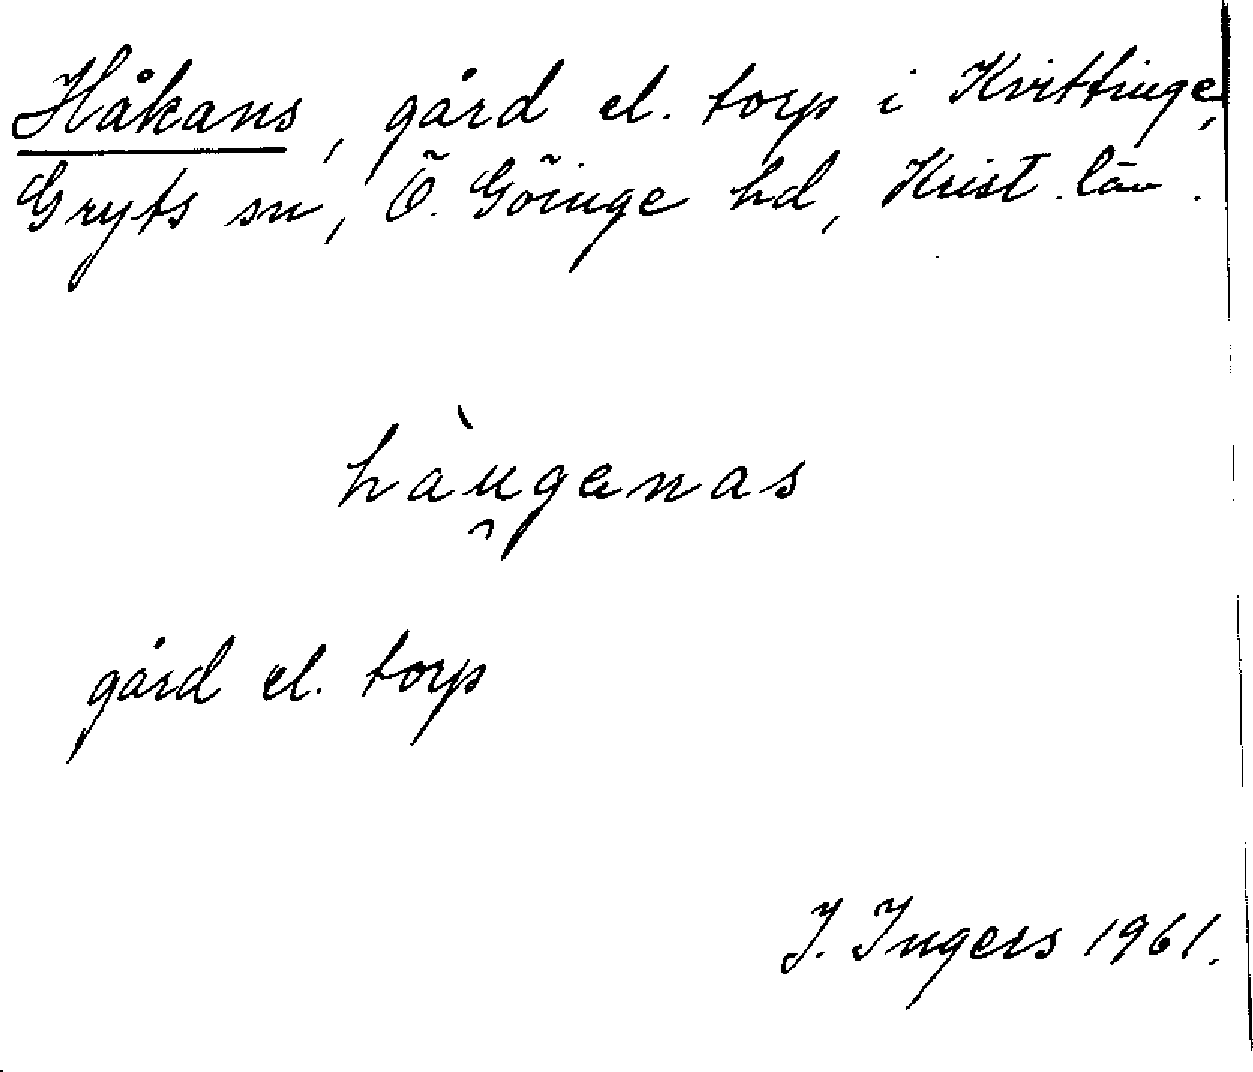 Håkans, gård el. torp i Kvittinge,
Gryts sn, Ö. Göinge hd, Krist. län.
hàu̯ganas
gård el. torp
J. Ingers 1961.